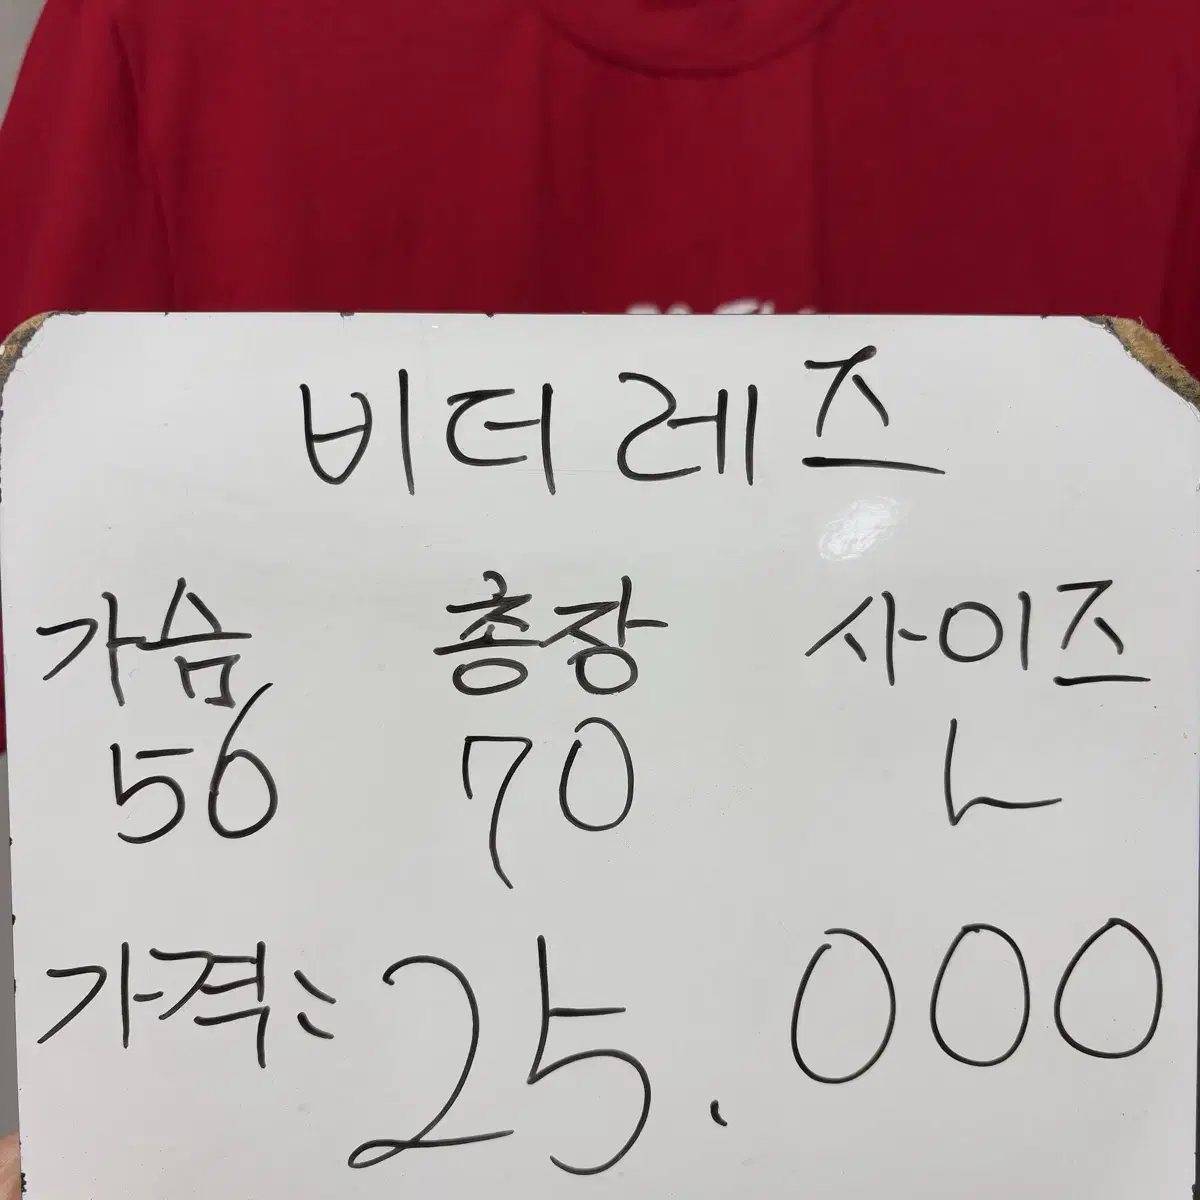 비더레즈
가슴 총장 사이즈
56 70 L
가격: 25.000